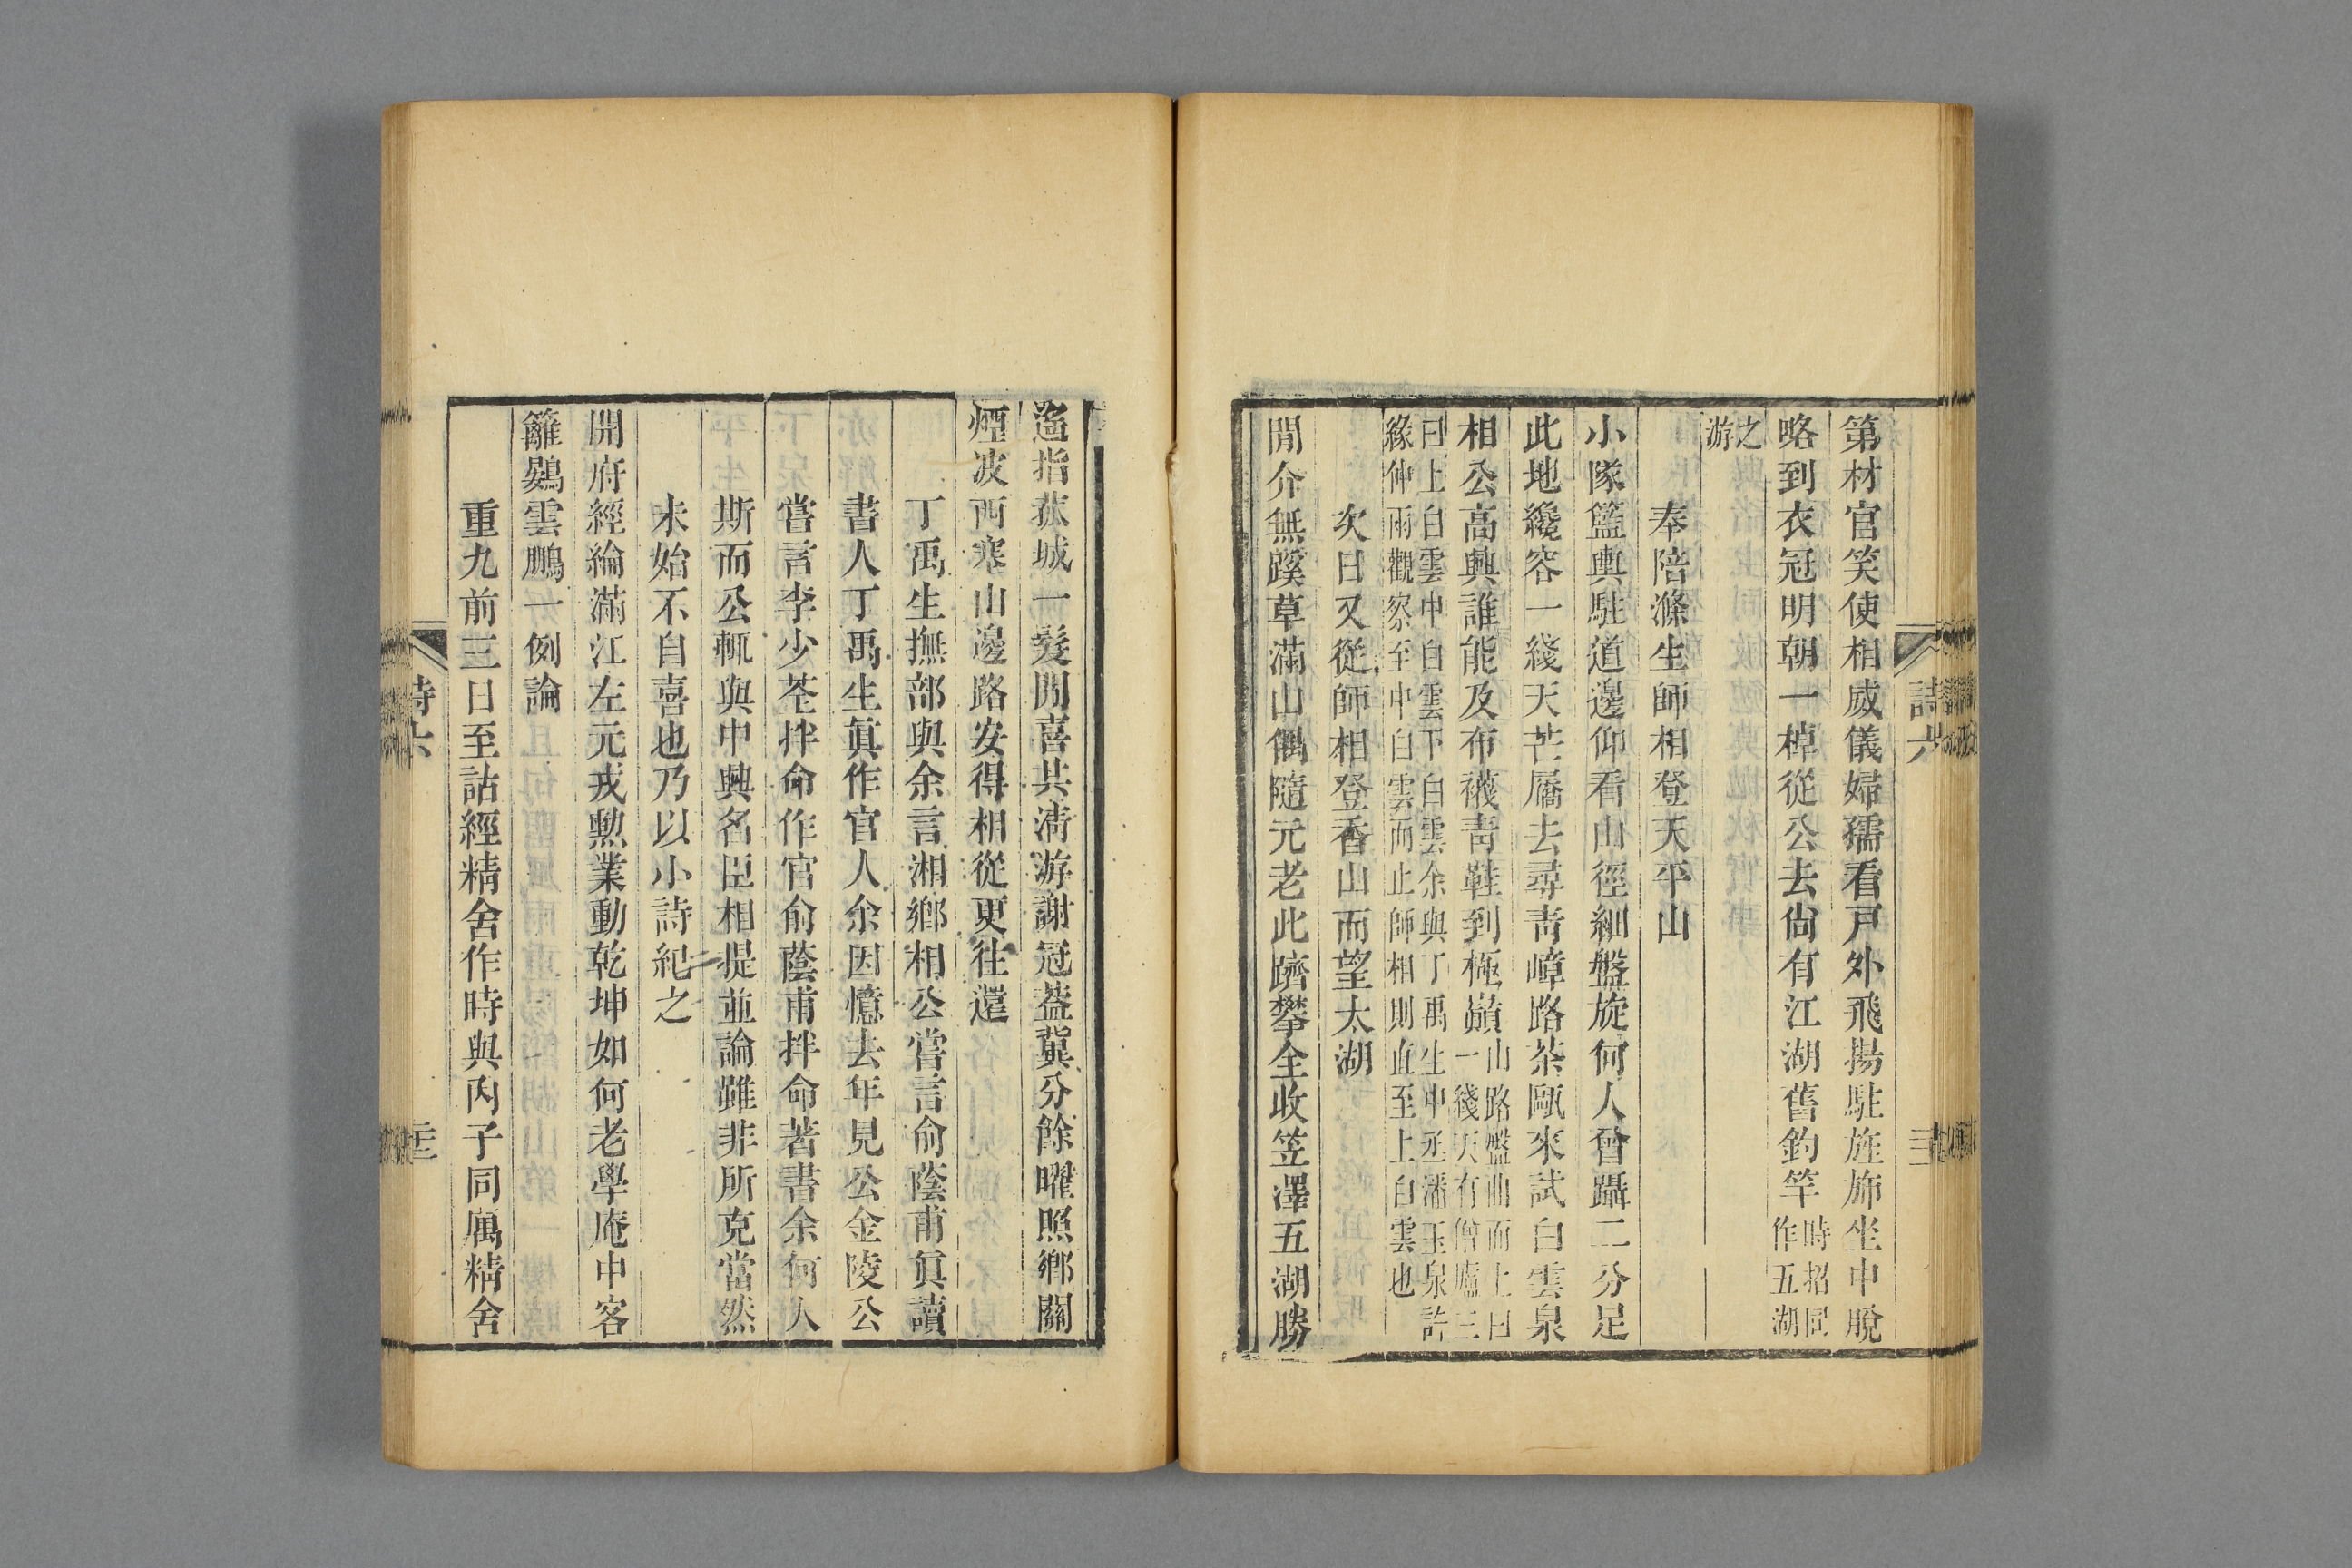 第材官笑使相威儀婦孺看戸外飛揚駐旌斾坐中脫
略到衣冠明朝一棹從公去尙有江湖舊釣竿時招同作五湖
之游
奉陪滌生師相登天平山
小隊籃輿駐道邊仰看山徑細盤旋何人曾躡二分足
此地纔容一綫天芒屩去尋靑嶂路茶甌來試白雲泉
相公高興誰能及布襪靑鞋到極巔山路盤曲而上曰一綫天有僧廬三
曰上白雲中白雲下白雲余與丁禹生中丞潘玉泉許
緣仲兩觀察至中白雲而止師相則直至上白雲也
次日又從師相登香山而望太湖
閒介無蹊草滿山偶隨元老此躋攀全收笠澤五湖勝
詩六
遙指菰城一髮閒喜共淸游謝冠葢冀分餘曜照鄉關
煙波西塞山邊路安得相從更往還
丁禹生撫部與余言湘鄉相公嘗言俞蔭甫眞讀
書人丁禹生眞作官人余因憶去年見公金陵公
嘗言李少荃拌命作官俞蔭甫拌命著書余何人
斯而公輒與中興名臣相提並論雖非所克當然
未始不自喜也乃以小詩紀之
開府經綸滿江左元戎勲業動乾坤如何老學庵中客
籬鷃雲鵬一例論
重九前三日至詁經精舍作時與內子同寓精舍
詩六